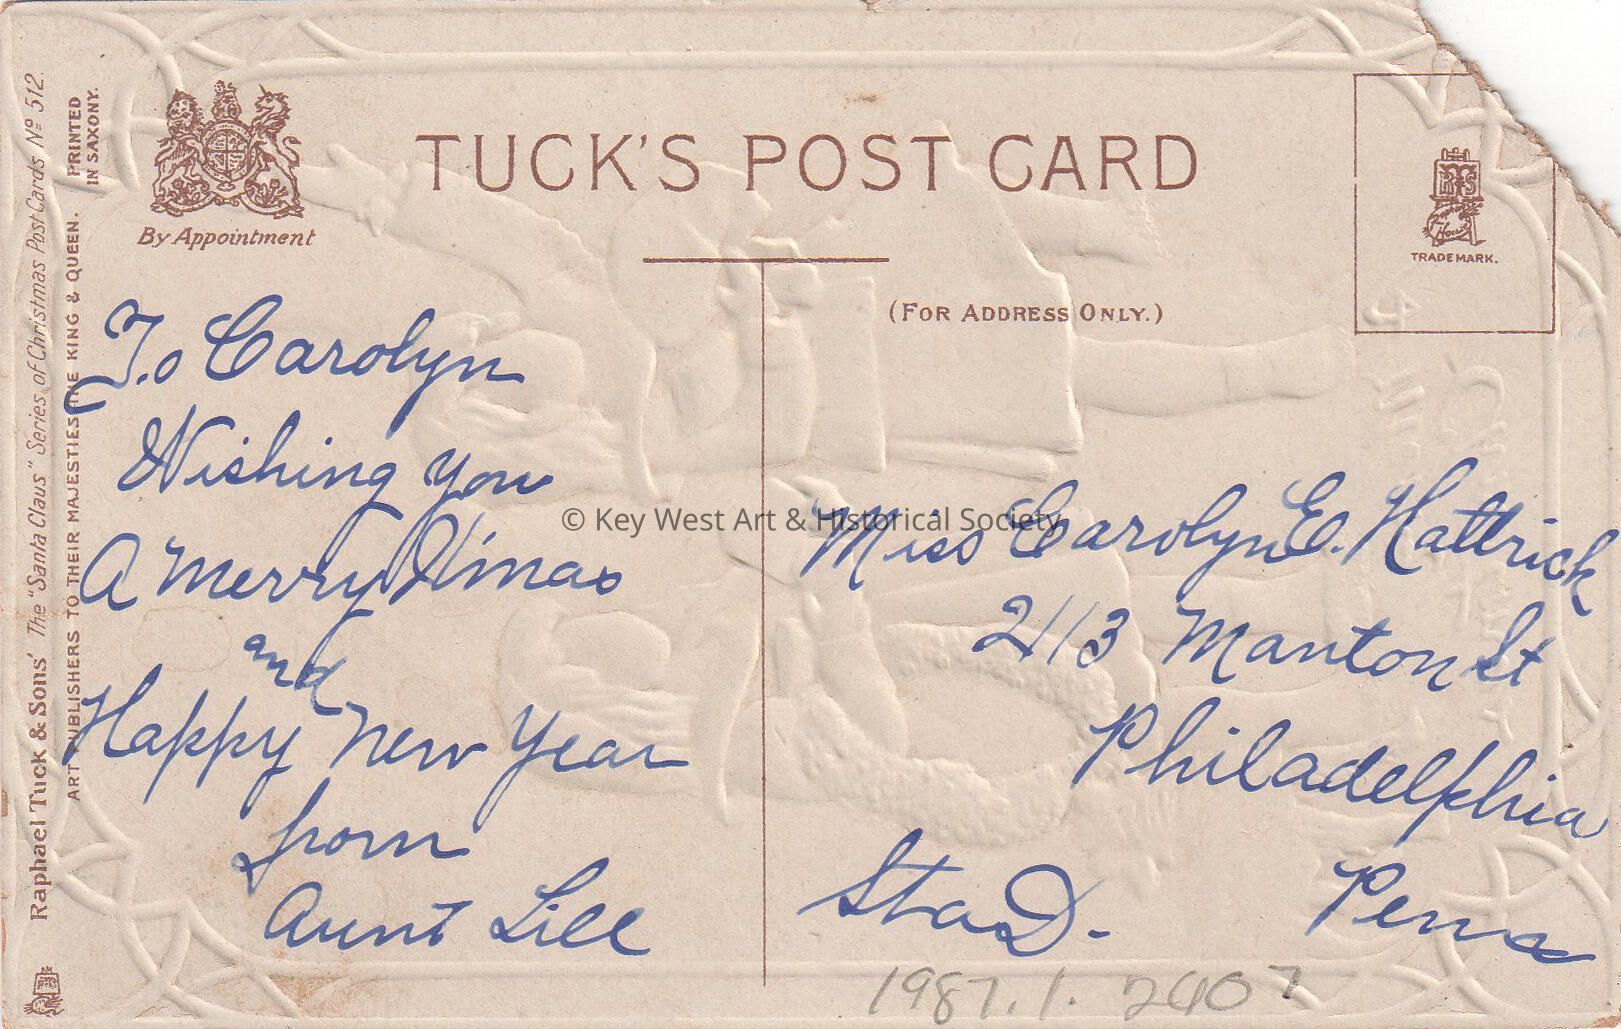 Raphael Tuck & Sons' The "Santa Claus" Series of Christmas Post Cards Nº 512.
ART PUBLISHERS TO THEIR MAJESTIES THE KING & QUEEN.
PRINTED
IN SAXONY.
By Appointment
TUCK'S POST CARD
(FOR ADDRESS ONLY.)
TRADE MARK.
To Carolyn
Wishing you
A Merry X'mas
and
Happy New Year
from
Aunt Lill
© Key West Art & Historical Society
Miss Carolyn E. Hattrick
2113 Manton St
Philadelphia
Sta D. Penna
1987.1.2407